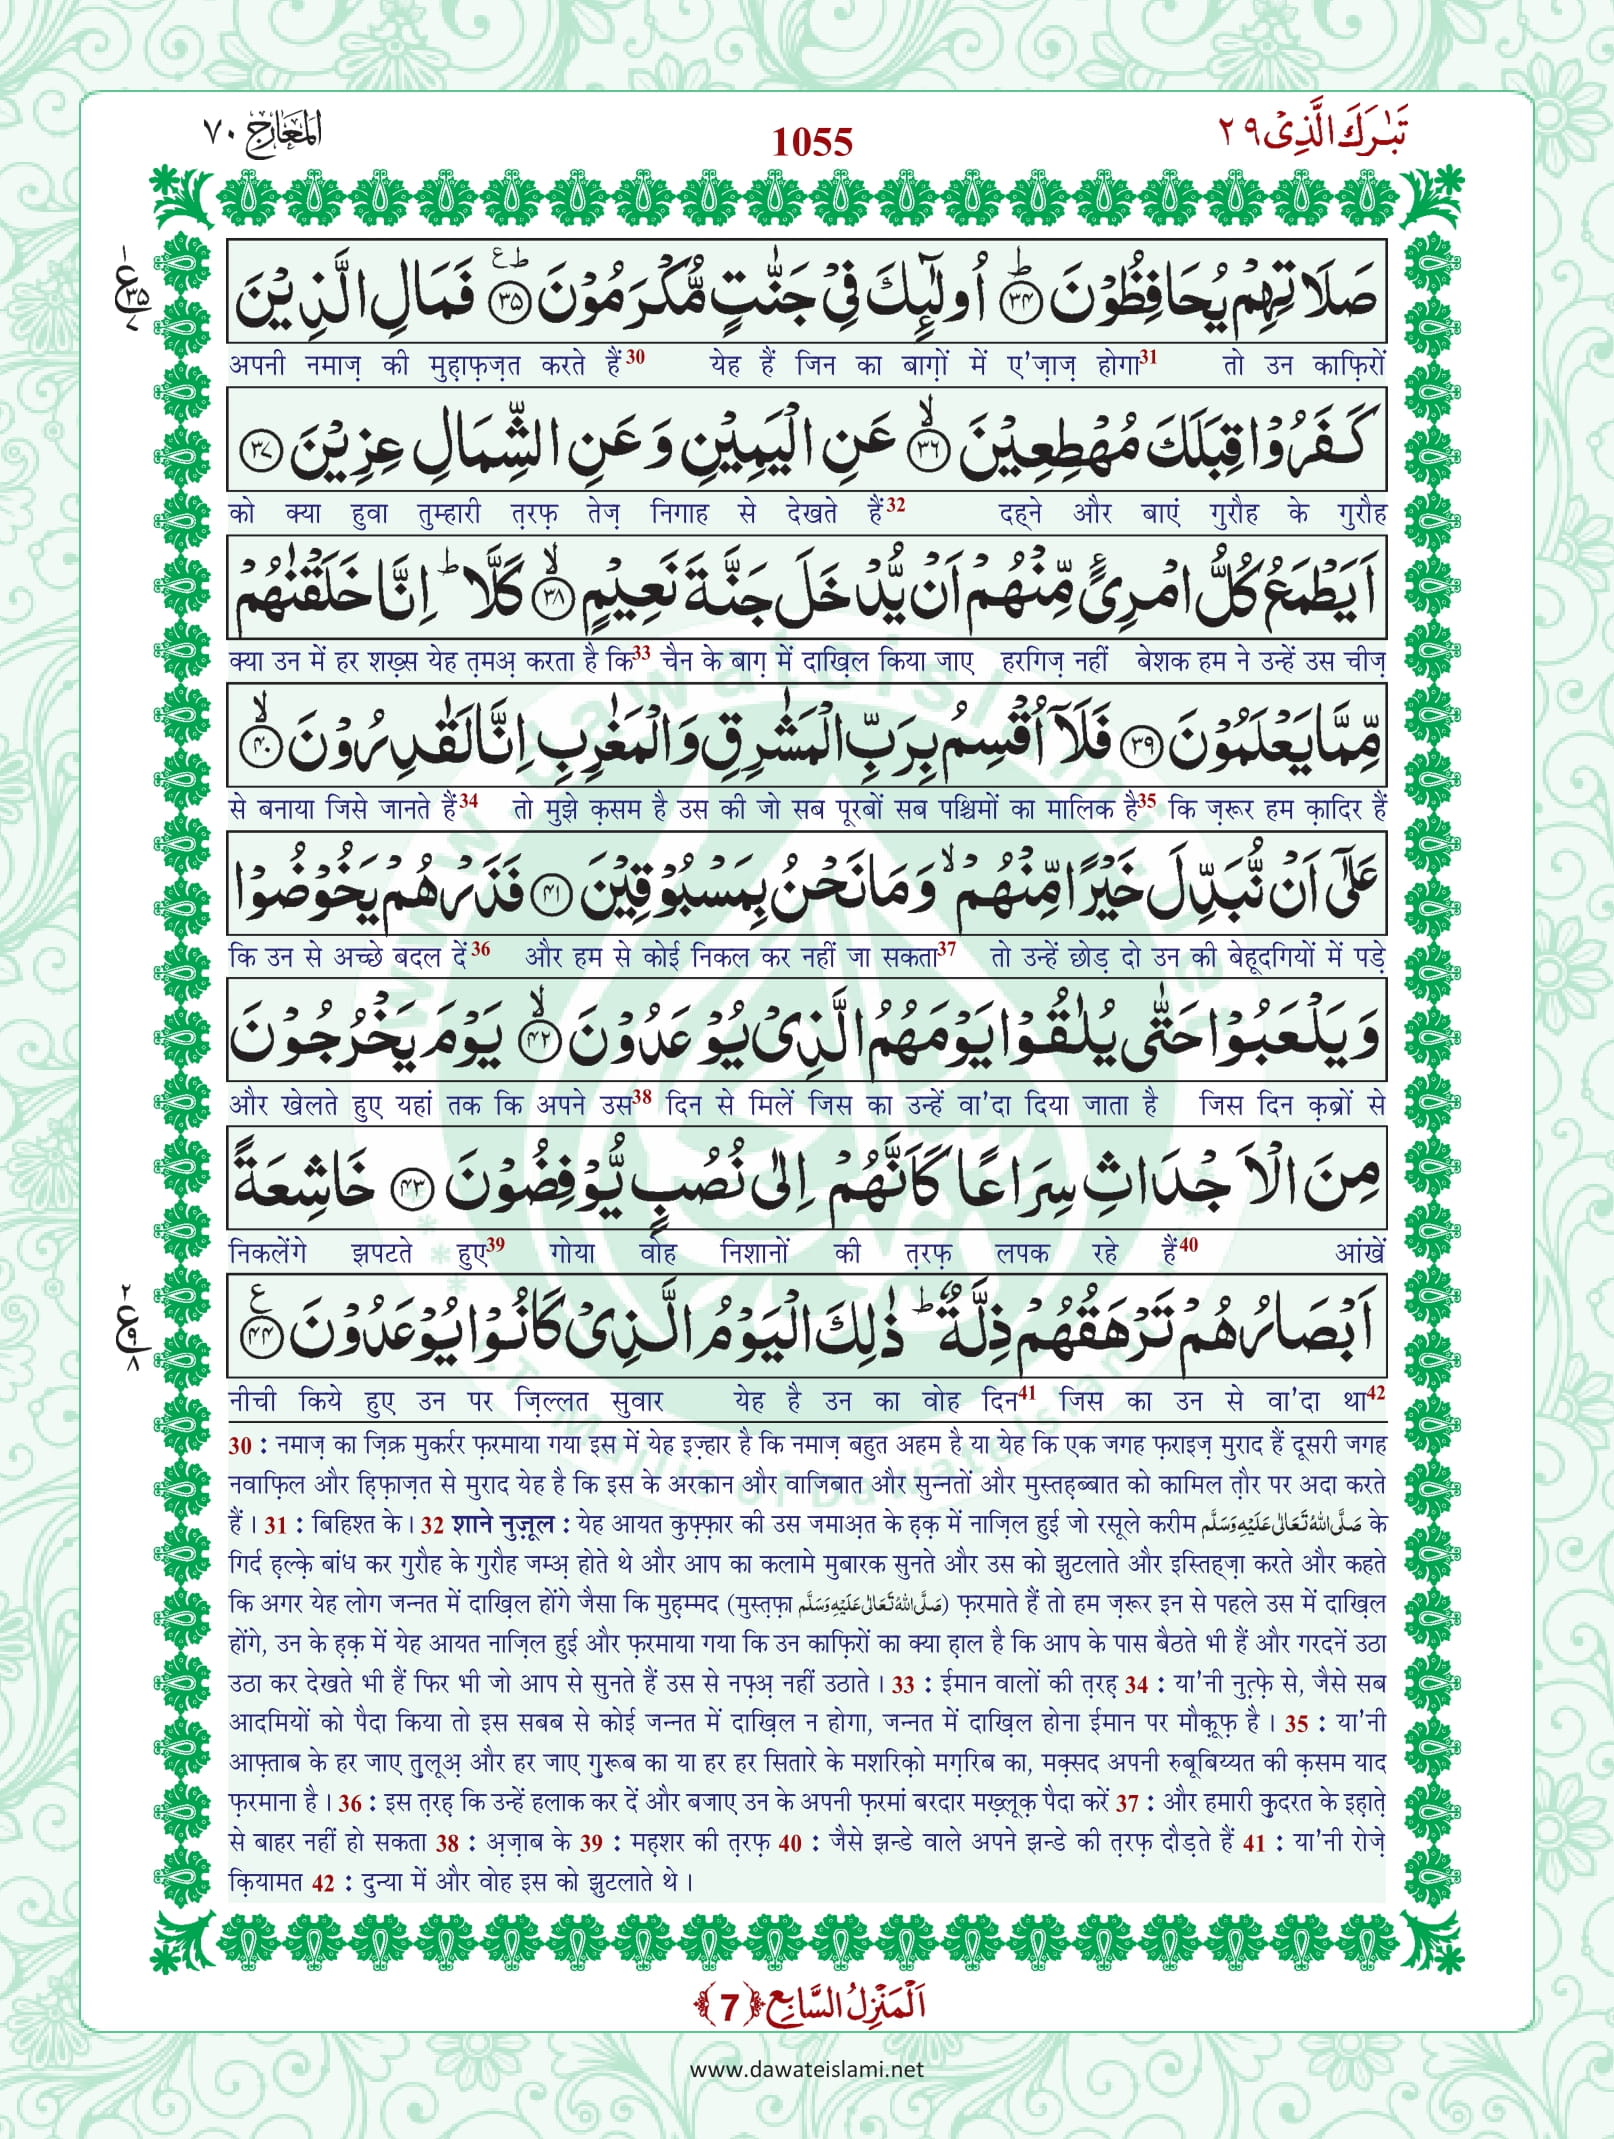 تَبٰرَكَ الَّذِیْ ٢٩
1055
اَلْمَعَارِج ٧٠
صَلَاتِهِمْ یُحَافِظُوْنَ ﴿۳۴﴾ؕ اُولٰٓىٕكَ فِیْ جَنّٰتٍ مُّكْرَمُوْنَ ﴿۳۵﴾ؕ۠ فَمَالِ الَّذِیْنَ
अपनी नमाज़ की मुह़ाफ़ज़त करते हैं30 येह हैं जिन का बाग़ों में ए'ज़ाज़ होगा31 तो उन काफ़िरों
كَفَرُوْا قِبَلَكَ مُهْطِعِیْنَ ﴿۳۶﴾ۙ عَنِ الْیَمِیْنِ وَ عَنِ الشِّمَالِ عِزِیْنَ ﴿۳۷﴾
को क्या हुवा तुम्हारी त़रफ़ तेज़ निगाह से देखते हैं32 दहने और बाएं गुरौह के गुरौह
اَیَطْمَعُ كُلُّ امْرِئٍ مِّنْهُمْ اَنْ یُّدْخَلَ جَنَّةَ نَعِیْمٍ ﴿۳۸﴾ۙ كَلَّاؕ اِنَّا خَلَقْنٰهُمْ
क्या उन में हर शख़्स येह त़मअ़ करता है कि33 चैन के बाग़ में दाख़िल किया जाए हरगिज़ नहीं बेशक हम ने उन्हें उस चीज़
مِّمَّا یَعْلَمُوْنَ ﴿۳۹﴾ فَلَاۤ اُقْسِمُ بِرَبِّ الْمَشٰرِقِ وَ الْمَغٰرِبِ اِنَّا لَقٰدِرُوْنَ ﴿۴۰﴾ۙ
से बनाया जिसे जानते हैं34 तो मुझे क़सम है उस की जो सब पूरबों सब पश्चिमों का मालिक है35 कि ज़रूर हम क़ादिर हैं
عَلٰۤى اَنْ نُّبَدِّلَ خَیْرًا مِّنْهُمْۙ وَ مَا نَحْنُ بِمَسْبُوْقِیْنَ ﴿۴۱﴾ فَذَرْهُمْ یَخُوْضُوْا
कि उन से अच्छे बदल दें36 और हम से कोई निकल कर नहीं जा सकता37 तो उन्हें छोड़ दो उन की बेहूदगियों में पड़े
وَ یَلْعَبُوْا حَتّٰى یُلٰقُوْا یَوْمَهُمُ الَّذِیْ یُوْعَدُوْنَ ﴿۴۲﴾ۙ یَوْمَ یَخْرُجُوْنَ
और खेलते हुए यहां तक कि अपने उस38 दिन से मिलें जिस का उन्हें वा'दा दिया जाता है जिस दिन क़ब्रों से
مِنَ الْاَجْدَاثِ سِرَاعًا كَاَنَّهُمْ اِلٰى نُصُبٍ یُّوْفِضُوْنَ ﴿۴۳﴾ خَاشِعَةً
निकलेंगे झपटते हुए39 गोया वोह निशानों की त़रफ़ लपक रहे हैं40 आंखें
اَبْصَارُهُمْ تَرْهَقُهُمْ ذِلَّةٌؕ ذٰلِكَ الْیَوْمُ الَّذِیْ كَانُوْا یُوْعَدُوْنَ ﴿۴۴﴾۠
नीची किये हुए उन पर ज़िल्लत सुवार येह है उन का वोह दिन41 जिस का उन से वा'दा था42
30 : नमाज़ का ज़िक्र मुकर्रर फ़रमाया गया इस में येह इज़्हार है कि नमाज़ बहुत अहम है या येह कि एक जगह फ़राइज़ मुराद हैं दूसरी जगह
नवाफ़िल और हि़फ़ाज़त से मुराद येह है कि इस के अरकान और वाजिबात और सुन्नतों और मुस्तह़ब्बात को कामिल त़ौर पर अदा करते
हैं। 31 : बिहिश्त के। 32 शाने नुज़ूल : येह आयत कुफ़्फ़ार की उस जमाअ़त के ह़क़ में नाज़िल हुई जो रसूले करीम صَلَّى اللهُ تَعَالٰى عَلَيْهِ وَسَلَّم के
गिर्द ह़ल्क़े बांध कर गुरौह के गुरौह जम्अ़ होते थे और आप का कलामे मुबारक सुनते और उस को झुटलाते और इस्तिह्ज़ा करते और कहते
कि अगर येह लोग जन्नत में दाख़िल होंगे जैसा कि मुह़म्मद (मुस्त़फ़ा صَلَّى اللهُ تَعَالٰى عَلَيْهِ وَسَلَّم) फ़रमाते हैं तो हम ज़रूर इन से पहले उस में दाख़िल
होंगे, उन के ह़क़ में येह आयत नाज़िल हुई और फ़रमाया गया कि उन काफ़िरों का क्या ह़ाल है कि आप के पास बैठते भी हैं और गरदनें उठा
उठा कर देखते भी हैं फिर भी जो आप से सुनते हैं उस से नफ़्अ़ नहीं उठाते। 33 : ईमान वालों की त़रह़ 34 : या'नी नुत़्फ़े से, जैसे सब
आदमियों को पैदा किया तो इस सबब से कोई जन्नत में दाख़िल न होगा, जन्नत में दाख़िल होना ईमान पर मौक़ूफ़ है। 35 : या'नी
आफ़्ताब के हर जाए त़ुलूअ़ और हर जाए ग़ुरूब का या हर हर सितारे के मशरिक़ो मग़रिब का, मक़्सद अपनी रुबूबिय्यत की क़सम याद
फ़रमाना है। 36 : इस त़रह़ कि उन्हें हलाक कर दें और बजाए उन के अपनी फ़रमां बरदार मख़्लूक़ पैदा करें 37 : और हमारी क़ुदरत के इह़ाते़
से बाहर नहीं हो सकता 38 : अ़ज़ाब के 39 : मह़शर की त़रफ़ 40 : जैसे झन्डे वाले अपने झन्डे की त़रफ़ दौड़ते हैं 41 : या'नी रोज़े
क़ियामत 42 : दुन्या में और वोह इस को झुटलाते थे।
اَلْمَنْزِلُ السَّابِع ﴿7﴾
www.dawateislami.net